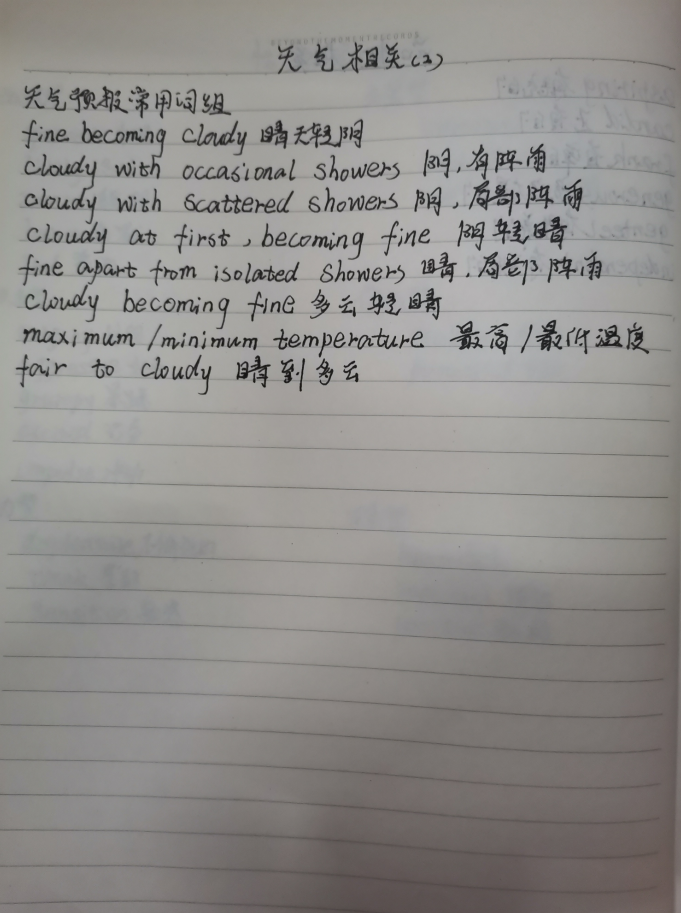 天气相关(2)
天气预报常用词组
fine becoming cloudy 晴天转阴
cloudy with occasional showers 阴,有阵雨
cloudy with scattered showers 阴,局部阵雨
cloudy at first, becoming fine 阴转晴
fine apart from isolated showers 晴,局部阵雨
cloudy becoming fine 多云转晴
maximum/minimum temperature 最高/最低温度
fair to cloudy 晴到多云